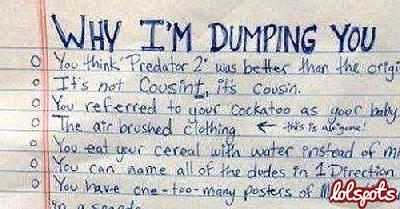 WHY I'M DUMPING YOU
You think "Predator 2" was better than the origi
It's not Cousint, its cousin.
You referred to your cockatoo as your baby
The air brushed clothing ← this is gone!
You eat your cereal with water instead of
You can name all of the dudes in 1 Direction
You have one-too-many posters of
in a
lolspots